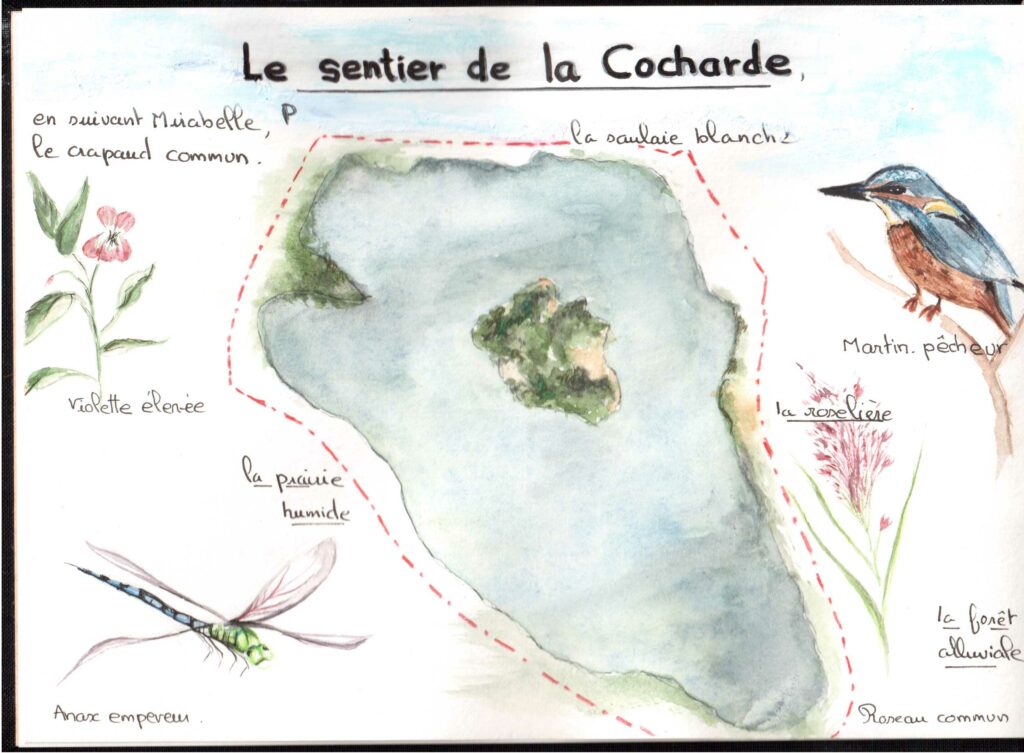 Le sentier de la Cocharde,
en suivant Mirabelle, P
le crapaud commun.
la saulaie blanche
Martin-pêcheur
Violette élevée
la roselière
la prairie
humide
la forêt
alluviale
Anax empereur.
Roseau commun